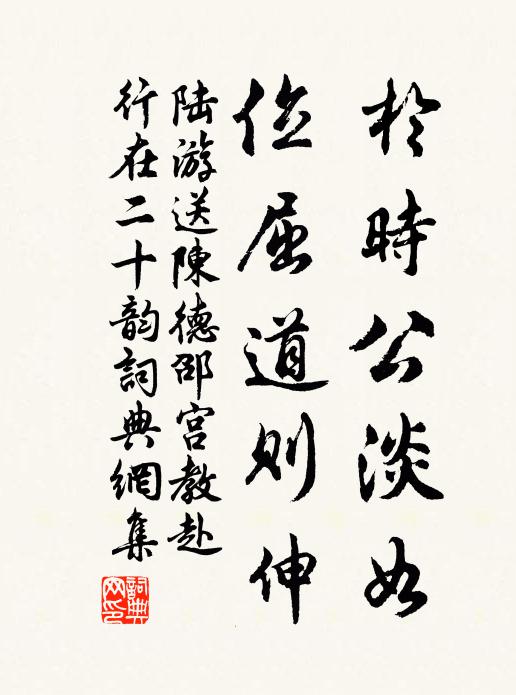 於時公淡如
位屈道則伸
陆游送陳德邵宫教赴
行在二十韵詞典網集
詞典
网印